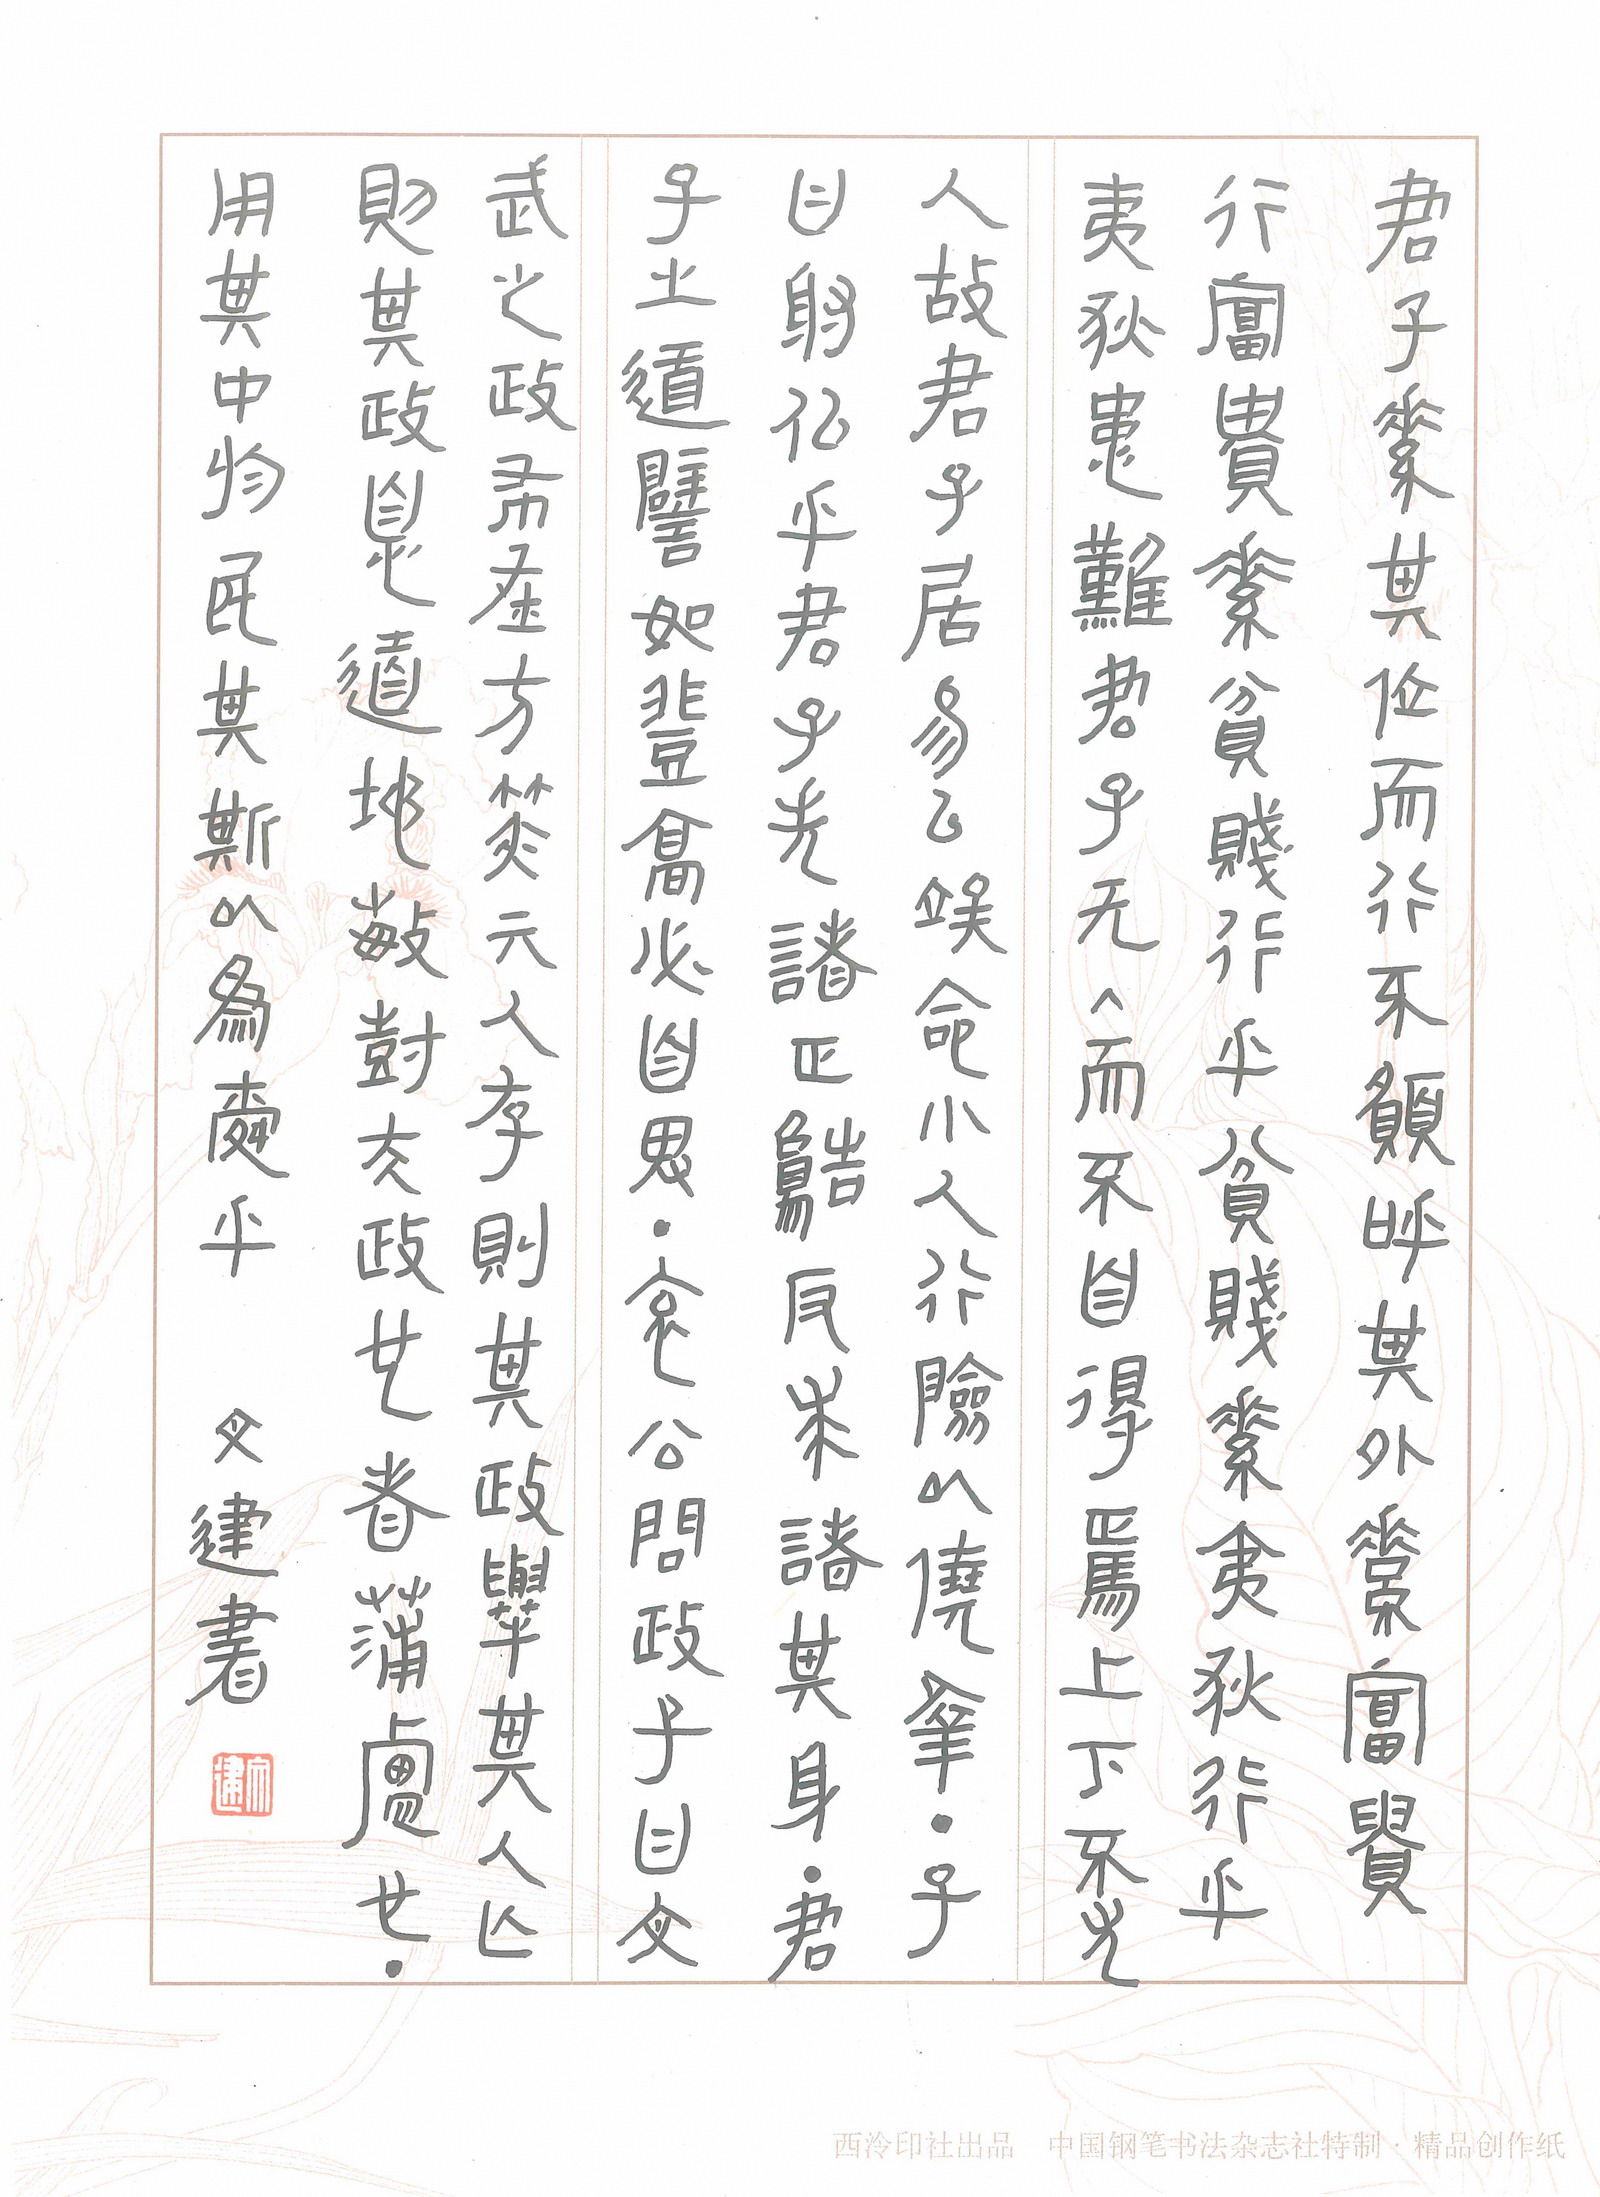 君子素其位而行不願呼其外素富貴
行富貴素貧賤行乎貧賤素夷狄行乎
夷狄患難君子无入而不自得焉上下不尤
人故君子居易以竢命小人行險以僥幸·子
曰射似乎君子失諸正鵠反求諸其身·君
子之道譬如登高必自思·哀公問政子曰文
武之政布在方策亓人存則其政舉其人亡
則其政息道地敏尌夫政也者蒲盧也·
用其中於民其斯以為舜乎 文建書
文建
西泠印社出品 中国钢笔书法杂志社特制·精品创作纸